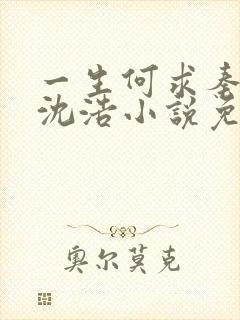 一生何求秦
沈浩小说免
奥尔莫克